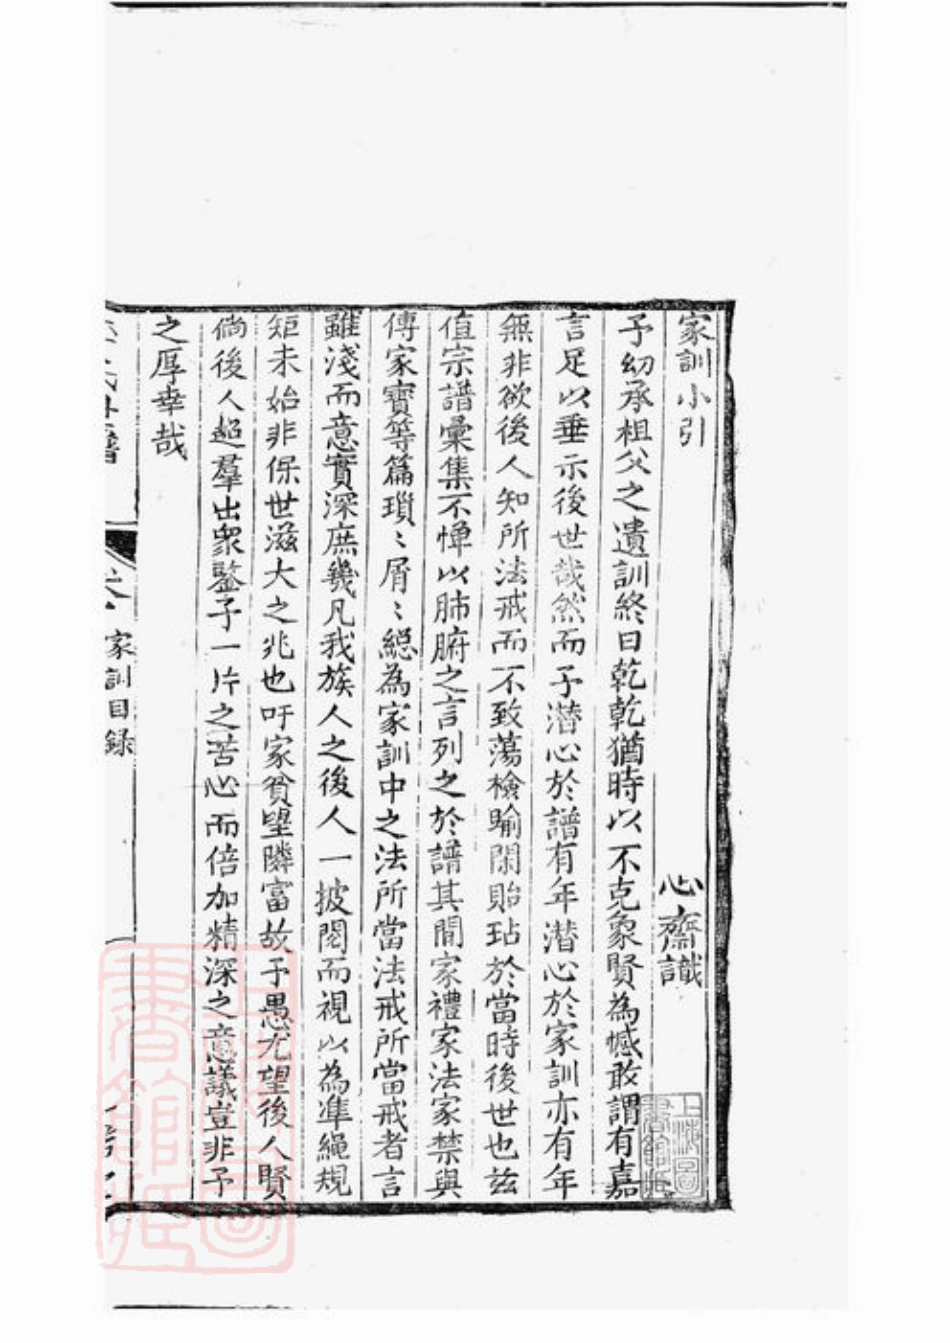 家訓小引
心齋識
予幼承祖父之遺訓終日乾乾猶時以不克象賢為憾敢謂有嘉
言足以垂示後世哉然而予潛心於譜有年潛心於家訓亦有年
無非欲後人知所法戒而不致蕩檢踰閑貽玷於當時後世也兹
值宗譜彙集不憚以肺腑之言列之於譜其間家禮家法家禁與
傳家寶等篇瑣〻屑〻緫為家訓中之法所當法戒所當戒者言
雖淺而意實深庶幾凡我族人之後人一披閱而視以為準繩規
矩未始非保世滋大之兆也吁家貧望隣富故予愚尤望後人賢
倘後人超羣出衆鑒予一片之苦心而倍加精深之意議豈非予
之厚幸哉
家訓目錄
上海圖書館藏
上海圖書館藏